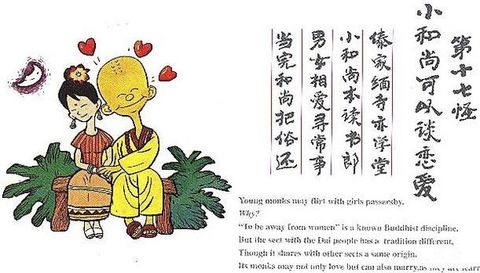 第十七怪
小和尚可以谈恋爱
傣家缅寺亦学堂
小和尚本读书郎
男女相爱寻常事
当完和尚把俗还
Young monks may flirt with girls passersby.
Why?
"To be away from women" is a known Buddhist discipline.
But the sect with the Dai people has a tradition different.
Though it shares with other sects a same origin.
Its monks may not only love but can also marry,as they are